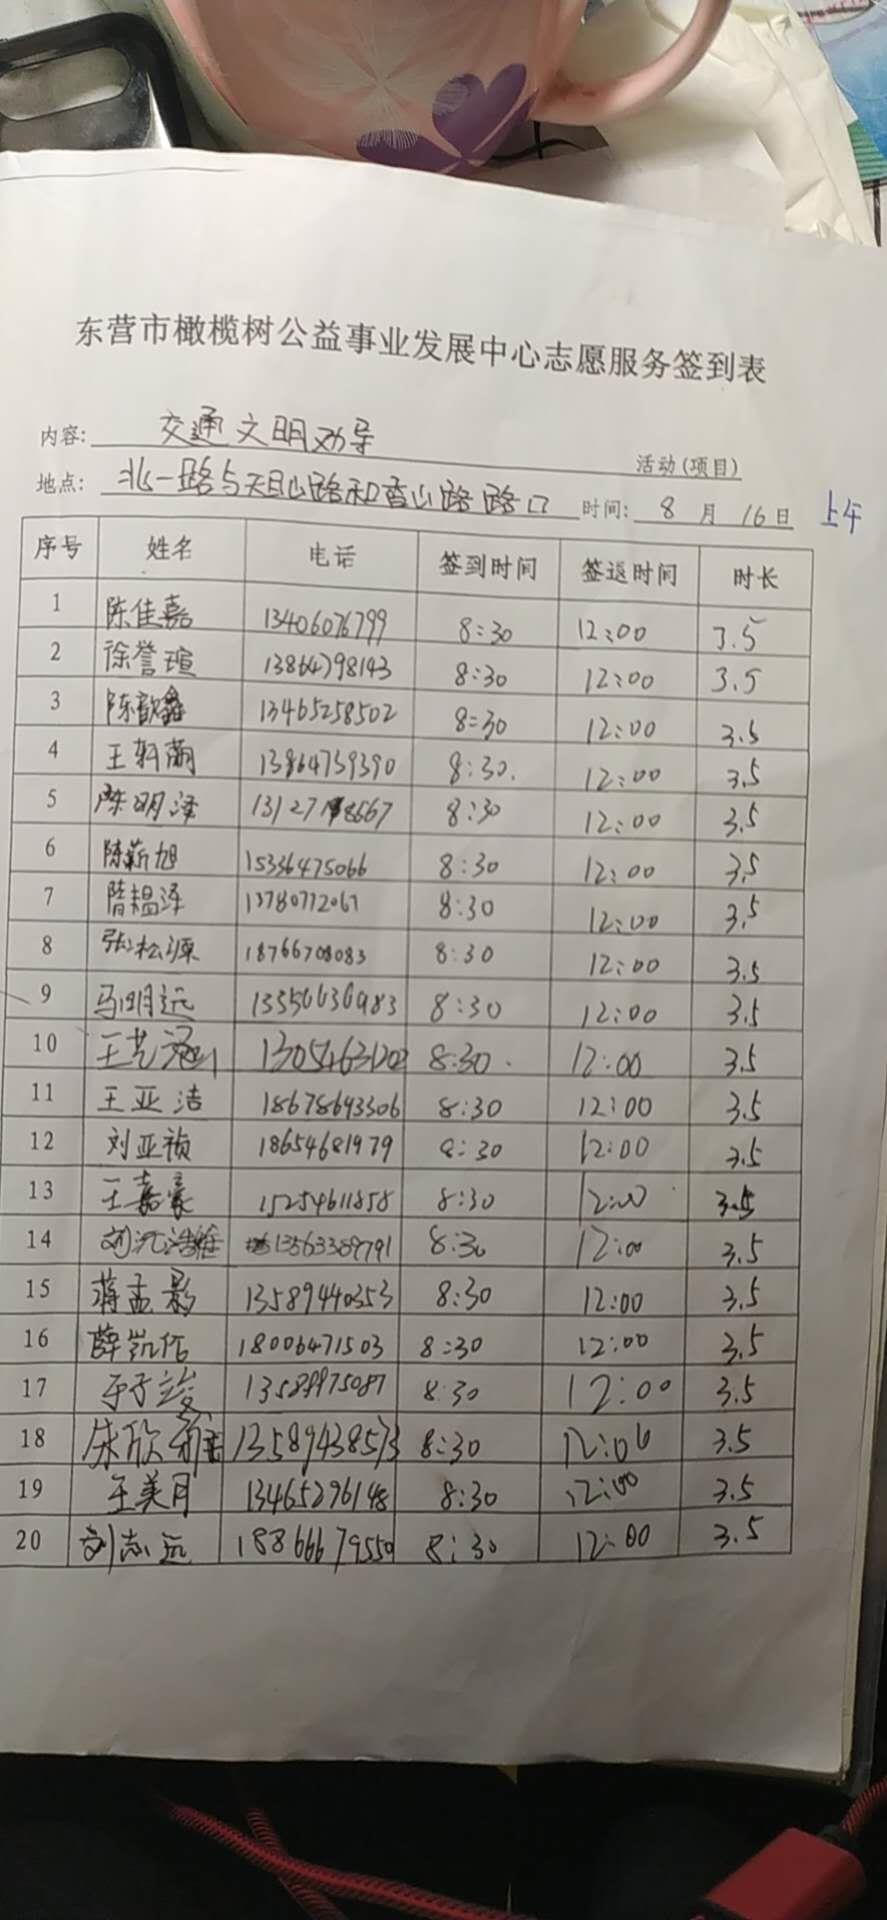 东营市橄榄树公益事业发展中心志愿服务签到表
内容: 交通文明劝导 活动(项目)
地点: 北一路与天目山路和香山路路口 时间: 8 月 16 日 上午
序号 姓名 电话 签到时间 签退时间 时长
1 陈佳嘉 13406076799 8:30 12:00 3.5
2 徐誉瑄 13864798143 8:30 12:00 3.5
3 陈歆鑫 13465258502 8:30 12:00 3.5
4 王轩萌 13864739390 8:30 12:00 3.5
5 陈明泽 8:30 12:00 3.5
6 陈薪旭 15336475066 8:30 12:00 3.5
7 隋韫泽 13780772067 8:30 12:00 3.5
8 张松源 18766708083 8:30 12:00 3.5
9 马明远 13356636983 8:30 12:00 3.5
10 王艺涵 13054631202 8:30 12:00 3.5
11 王亚洁 18678643306 8:30 12:00 3.5
12 刘亚祯 18654681979 8:30 12:00 3.5
13 王嘉豪 15254611858 8:30 12:00 3.5
14 13563389791 8:30 12:00 3.5
15 蒋孟影 13589440353 8:30 12:00 3.5
16 薛凯伍 18006471503 8:30 12:00 3.5
17 于子竣 13589975087 8:30 12:00 3.5
18 13589438573 8:30 12:00 3.5
19 王美月 13465296148 8:30 12:00 3.5
20 刘志远 18866679550 8:30 12:00 3.5